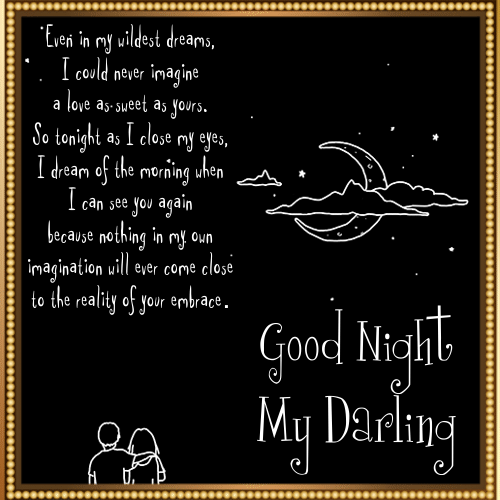 Even in my wildest dreams,
I could never imagine
a love as sweet as yours.
So tonight as I close my eyes,
I dream of the morning when
I can see you again
because nothing in my own
imagination will ever come close
to the reality of your embrace.
Good Night
My Darling